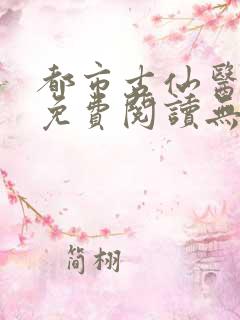 都市古仙醫
免費閱讀無
簡栩